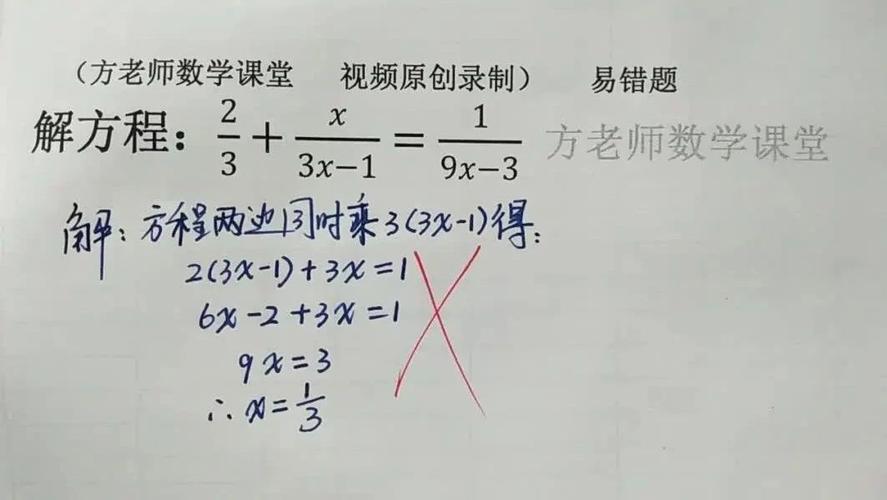 （方老师数学课堂 视频原创录制） 易错题
解方程：2/3 + x/(3x−1) = 1/(9x−3) 方老师数学课堂
解：方程两边同时乘3(3x-1)得：
2(3x-1)+3x=1
6x-2+3x=1
9x=3
∴x=1/3